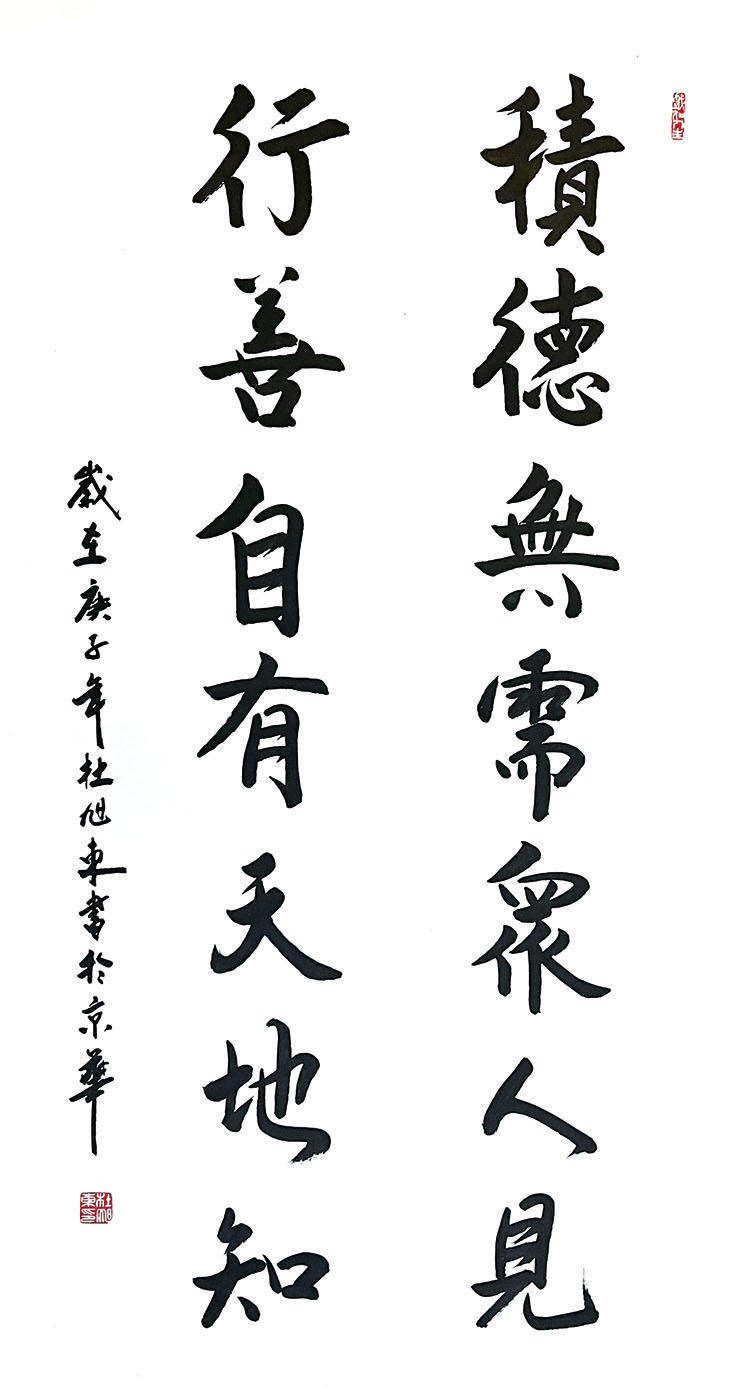 積德無需眾人見
行善自有天地知
歲在庚子年杜旭東書於京華
杜旭東印